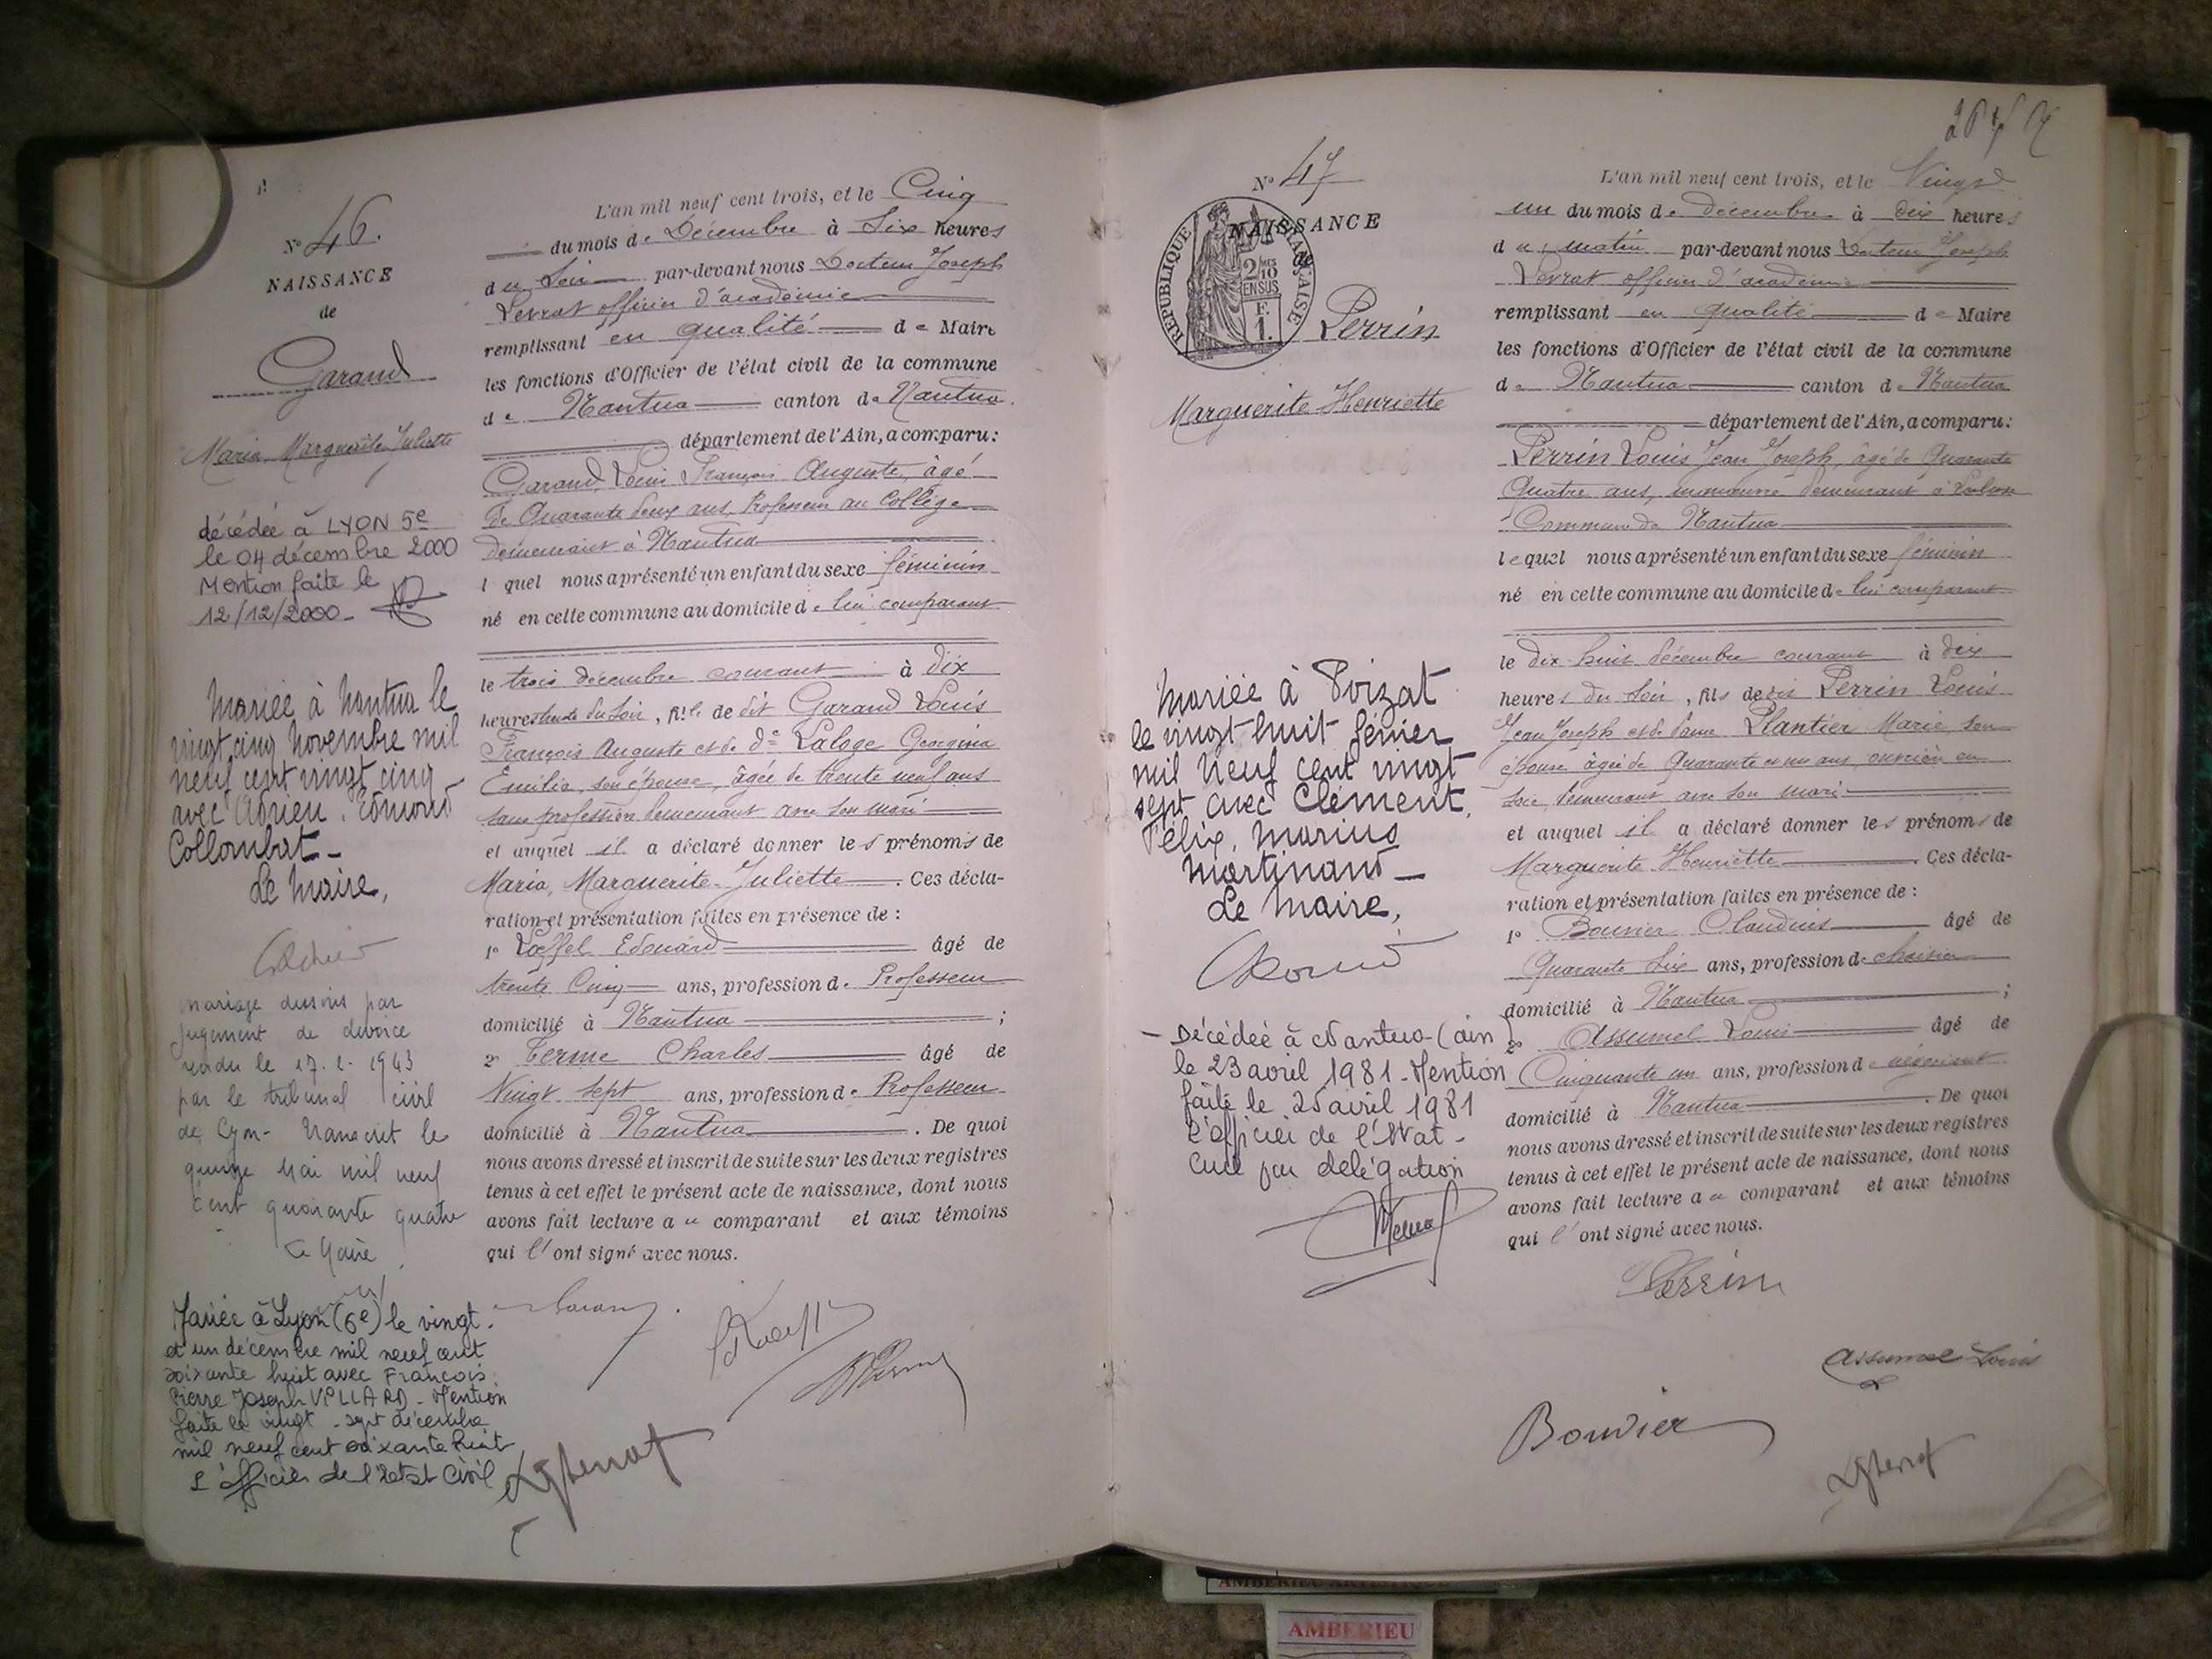 Nº 46.
NAISSANCE
de
Garand
Maria Marguerite Juliette
décédée à LYON 5e
le 04 décembre 2000
Mention faite le
12/12/2000
Mariée à Nantua le
vingt cinq Novembre mil
neuf cent vingt cinq
avec Adrien, Edmond
Collombat
Le Maire,
mariage dissous par
jugement de divorce
rendu le 17. 2. 1943
par le tribunal civil
de Lyon - Transcrit le
quinze Mai mil neuf
cent quarante quatre
Le Maire
Mariée à Lyon (6e) le vingt
et un décembre mil neuf cent
soixante huit avec François
Pierre Joseph VILLARD - Mention
faite le vingt-sept décembre
mil neuf cent soixante huit
L'officier de l'état Civil
L'an mil neuf cent trois, et le Cinq
du mois de Décembre à Six heures
du Soir par-devant nous Docteur Joseph
Levrat officier d'académie
remplissant en qualité de Maire
les fonctions d'Officier de l'état civil de la commune
de Nantua canton de Nantua.
département de l'Ain, a comparu:
Garand Louis François Auguste, âgé
de Quarante deux ans, Professeur au Collège
demeurant à Nantua
l quel nous a présenté un enfant du sexe féminin
né en cette commune au domicile de lui comparant
le trois décembre courant à dix
heures trente du Soir, fille de dit Garand Louis
François Auguste et de de Laloge Georgina
Emilia, son épouse, âgée de trente neuf ans
sans profession demeurant avec son mari
et auquel il a déclaré donner les prénoms de
Maria, Marguerite Juliette. Ces décla-
ration et présentation faites en présence de :
1º Lœffel Edouard âgé de
trente Cinq ans, profession de Professeur
domicilié à Nantua ;
2º Terme Charles âgé de
Vingt sept ans, profession de Professeur
domicilié à Nantua. De quoi
nous avons dressé et inscrit de suite sur les deux registres
tenus à cet effet le présent acte de naissance, dont nous
avons fait lecture au comparant et aux témoins
qui l'ont signé avec nous.
Nº 47
NAISSANCE
de
RÉPUBLIQUE FRANÇAISE
2/10 EN SUS
F. 1.
Perrin
Marguerite Henriette
Mariée à Poizat
le vingt-huit février
mil neuf cent vingt
sept avec Clément,
Félix, Marius
Martinand
Le Maire,
Décédée à Nantua (ain)
le 23 avril 1981 - Mention
faite le 25 avril 1981
L'officier de l'Etat-
Civil par délégation
L'an mil neuf cent trois, et le Vingt
un du mois de décembre à dix heures
du matin par-devant nous Docteur Joseph
Levrat officier d'académie
remplissant en qualité de Maire
les fonctions d'Officier de l'état civil de la commune
de Nantua canton de Nantua
département de l'Ain, a comparu:
Perrin Louis Jean Joseph, âgé de Quarante
Quatre ans, manœuvre demeurant à
Commune de Nantua
lequel nous a présenté un enfant du sexe féminin
né en cette commune au domicile de lui comparant
le dix huit décembre courant à dix
heures du Soir, fils de dit Perrin Louis
Jean Joseph et de dame Plantier Marie, son
épouse âgée de Quarante et un ans, ouvrière en
soie, demeurant avec son mari
et auquel il a déclaré donner les prénoms de
Marguerite Henriette. Ces décla-
ration et présentation faites en présence de :
1º Bouvier Claudius âgé de
Quarante Six ans, profession de chaisier
domicilié à Nantua ;
2º Assumel Louis âgé de
Cinquante un ans, profession de négociant
domicilié à Nantua. De quoi
nous avons dressé et inscrit de suite sur les deux registres
tenus à cet effet le présent acte de naissance, dont nous
avons fait lecture au comparant et aux témoins
qui l'ont signé avec nous.
Perrin
Assumel Louis
Bouvier
AMBERIEU